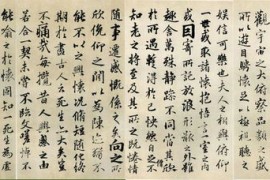 觀宇宙之大俯察品類之盛
所以遊目騁懷足以極視聽之
娛信可樂也夫人之相與俯仰
一世或取諸懷抱悟言一室之內
或因寄所託放浪形骸之外雖
趣舍萬殊靜躁不同當其欣
於所遇暫得於己快然自足不
知老之將至及其所之既惓情
隨事遷感慨係之矣向之所
欣俛仰之閒以為陳迹猶不
能不以之興懷況脩短隨化終
期於盡古人云死生亦大矣豈
不痛哉每攬昔人興感之由
若合一契未嘗不臨文嗟悼不
能喻之於懷固知一死生為虛